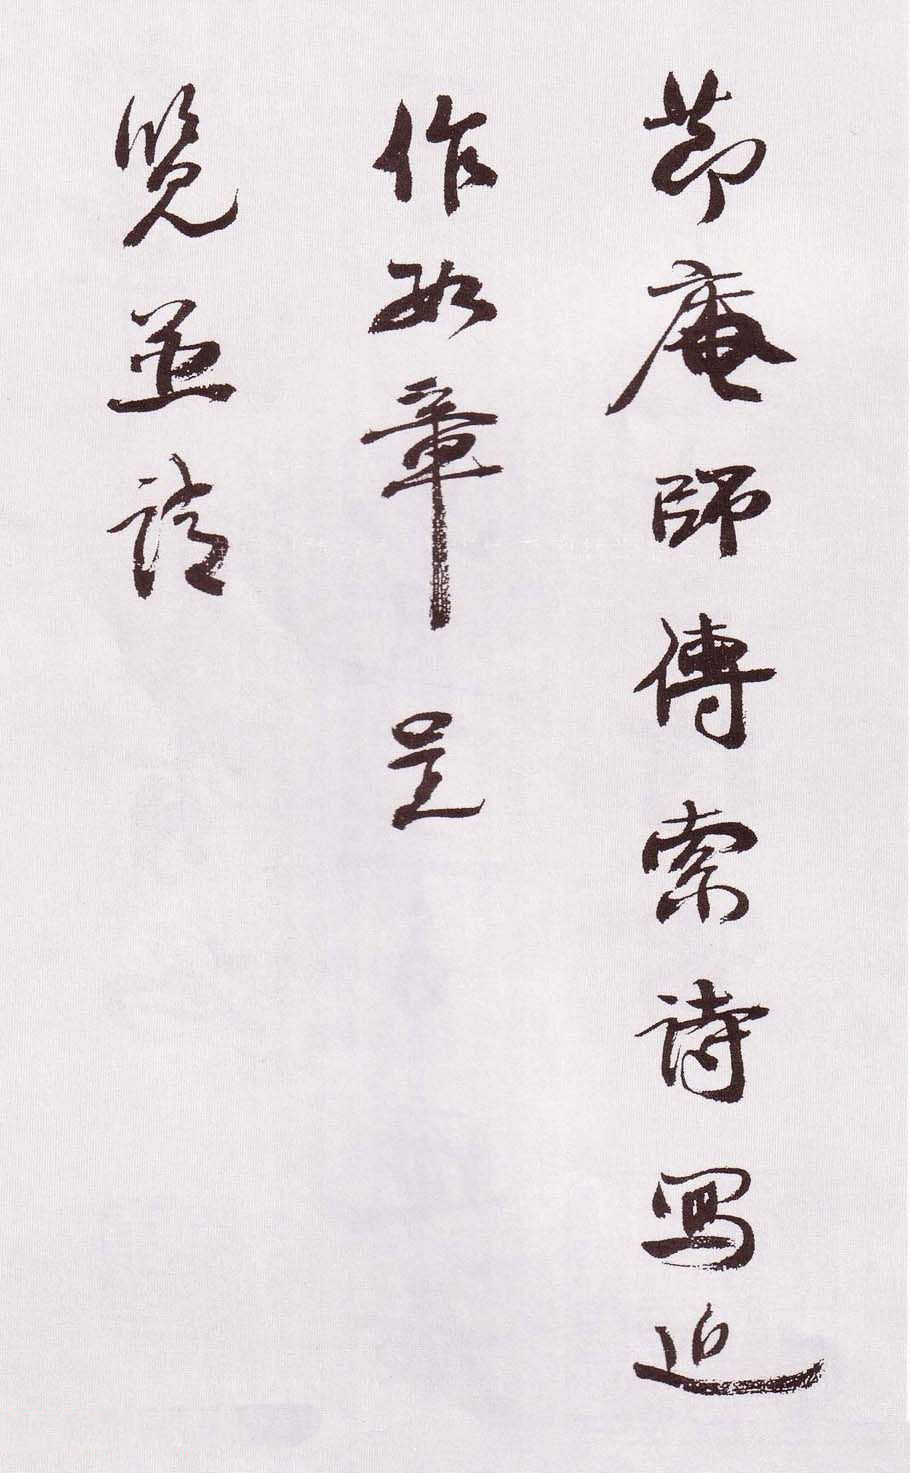 節庵師傅索詩寫近
作數章呈
覽並請